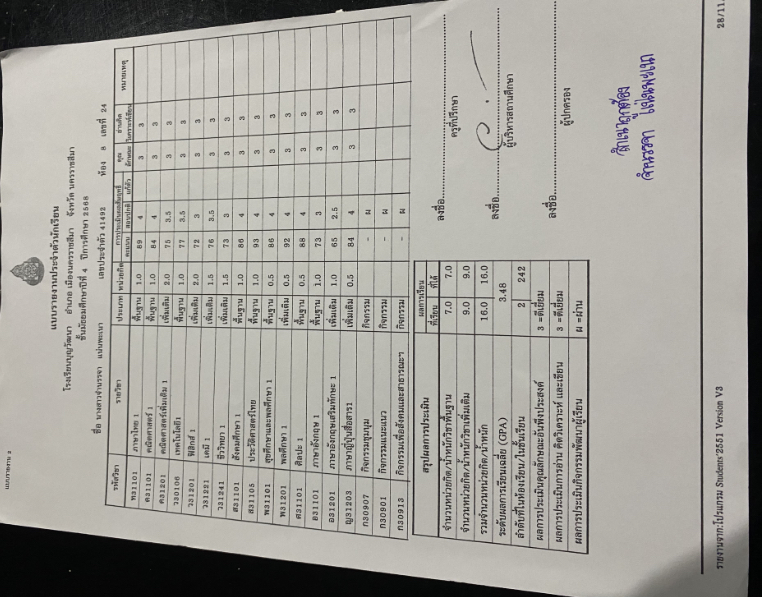 แบบรายงาน 2
แบบรายงานประจำตัวนักเรียน
โรงเรียนบุญวัฒนา อำเภอ เมืองนครราชสีมา จังหวัด นครราชสีมา
ชั้นมัธยมศึกษาปีที่ 4 ปีการศึกษา 2568
เลขประจำตัว 41492 ห้อง 8 เลขที่ 24
รหัสวิชา รายวิชา ประเภท หน่วยกิต คะแนน หมายเหตุ
ท31101 ภาษาไทย 1 พื้นฐาน 1.0 89 4 3 3
ค31101 คณิตศาสตร์ 1 พื้นฐาน 1.0 84 4 3 3
ค31201 คณิตศาสตร์เพิ่มเติม 1 เพิ่มเติม 2.0 75 3.5 3 3
ว30106 เทคโนโลยี1 พื้นฐาน 1.0 77 3.5 3 3
ว31201 ฟิสิกส์ 1 เพิ่มเติม 2.0 72 3 3 3
ว31221 เคมี 1 เพิ่มเติม 1.5 76 3.5 3 3
ว31241 ชีววิทยา 1 เพิ่มเติม 1.5 73 3 3 3
ส31101 สังคมศึกษา 1 พื้นฐาน 1.0 86 4 3 3
ส31105 ประวัติศาสตร์ไทย พื้นฐาน 1.0 93 4 3 3
พ31101 สุขศึกษาและพลศึกษา 1 พื้นฐาน 0.5 86 4 3 3
พ31201 พลศึกษา 1 เพิ่มเติม 0.5 92 4 3 3
ศ31101 ศิลปะ 1 พื้นฐาน 0.5 88 4 3 3
อ31101 ภาษาอังกฤษ 1 พื้นฐาน 1.0 73 3 3 3
อ31201 ภาษาอังกฤษเสริมทักษะ 1 เพิ่มเติม 1.0 65 2.5 3 3
ญ31203 ภาษาญี่ปุ่นสื่อสาร1 เพิ่มเติม 0.5 84 4 3 3
ก30907 กิจกรรมชุมนุม กิจกรรม - ผ
ก30901 กิจกรรมแนะแนว กิจกรรม - ผ
ก30913 กิจกรรมเพื่อสังคมและสาธารณะฯ กิจกรรม - ผ
สรุปผลการประเมิน ผลการเรียน
ที่เรียน ที่ได้
จำนวนหน่วยกิต/น้ำหนักวิชาพื้นฐาน 7.0 7.0
จำนวนหน่วยกิต/น้ำหนักวิชาเพิ่มเติม 9.0 9.0
รวมจำนวนหน่วยกิต/น้ำหนัก 16.0 16.0
ระดับผลการเรียนเฉลี่ย (GPA) 3.48
ลำดับที่ในห้องเรียน/ในชั้นเรียน 2 242
ผลการประเมินคุณลักษณะอันพึงประสงค์ 3 =ดีเยี่ยม
ผลการประเมินการอ่าน คิดวิเคราะห์ และเขียน 3 =ดีเยี่ยม
ผลการประเมินกิจกรรมพัฒนาผู้เรียน ผ =ผ่าน
ลงชื่อ
ครูที่ปรึกษา
ลงชื่อ
ผู้บริหารสถานศึกษา
ลงชื่อ
ผู้ปกครอง
สำเนาถูกต้อง
รายงานจาก:โปรแกรม Students'2551 Version V3
28/11